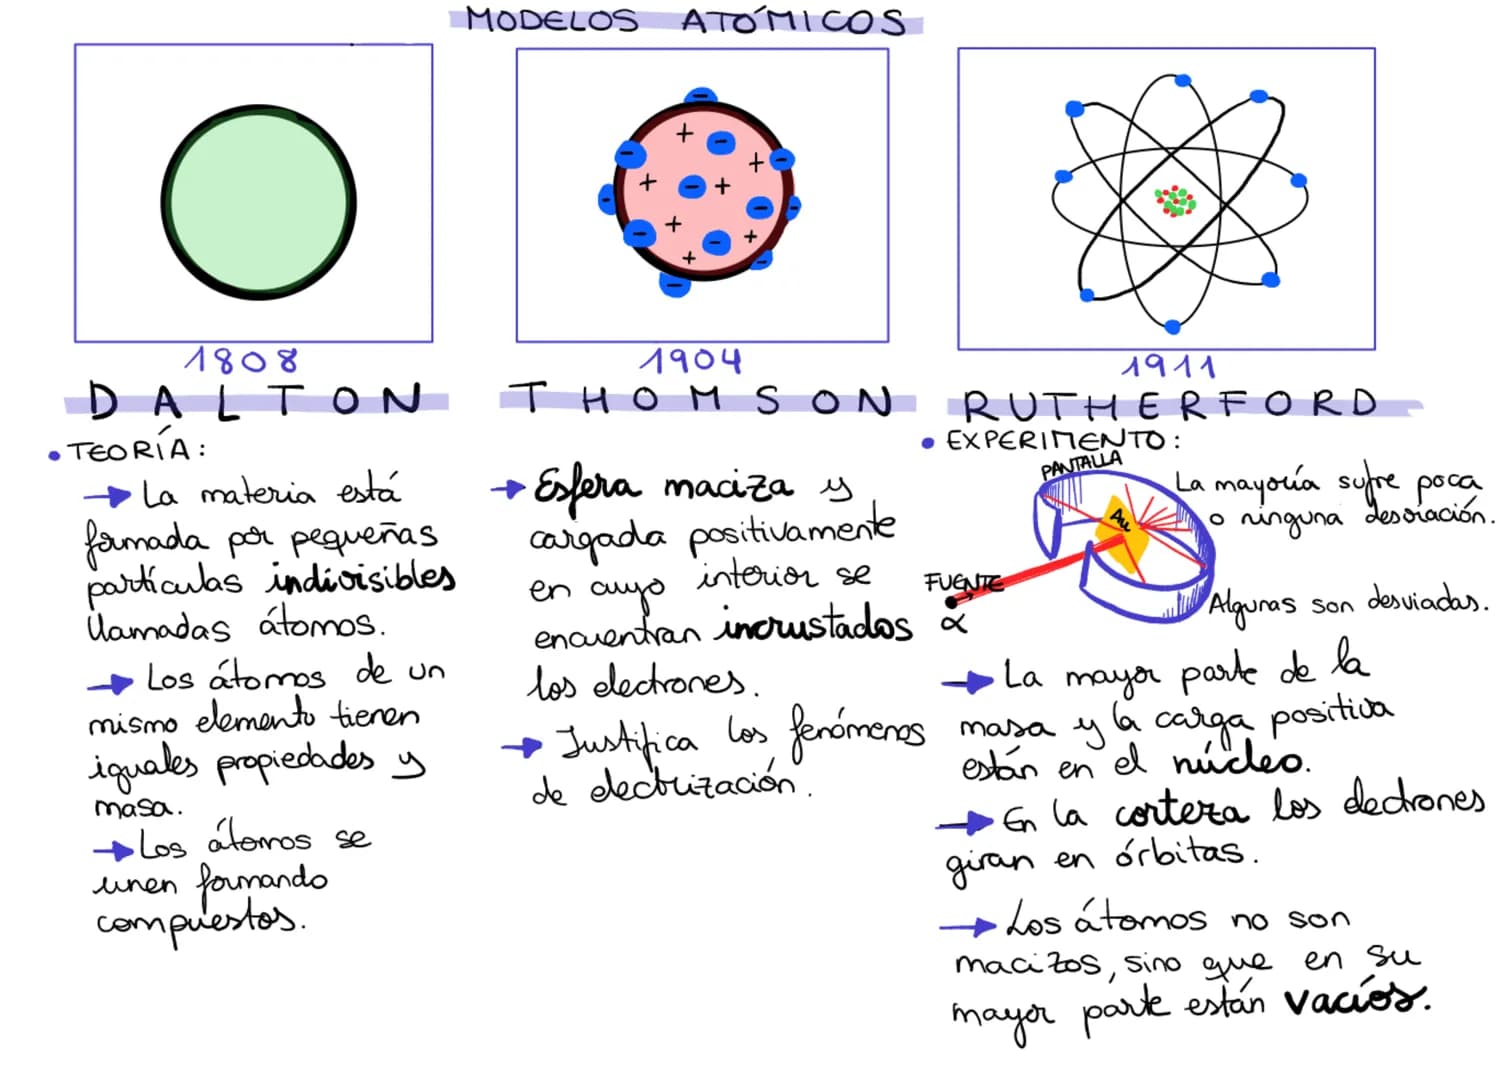 MODELOS ATÓMICOS
1808
DALTON
• TEORÍA:
→ La materia está
formada por pequeñas
partículas indivisibles
llamadas átomos.
→ Los átomos de un
mismo elemento tienen
iguales propiedades y
masa.
→ Los átomos se
unen formando
compuestos.
1904
THOMSON
→ Esfera maciza y
cargada positivamente
en cuyo interior se
encuentran incrustados
los electrones.
→ Justifica los fenómenos
de electrización.
1911
RUTHERFORD
• EXPERIMENTO:
PANTALLA
Au
FUENTE
α
La mayoría sufre poca
o ninguna desviación.
Algunas son desviadas.
→ La mayor parte de la
masa y la carga positiva
están en el núcleo.
→ En la corteza los electrones
giran en órbitas.
→ Los átomos no son
macizos, sino que en su
mayor parte están vacíos.